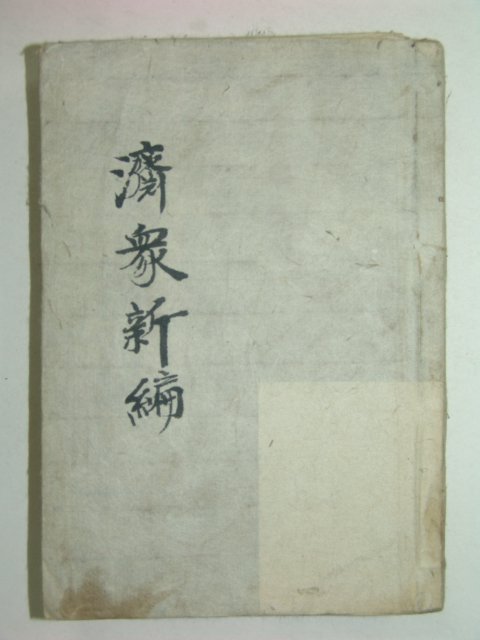 濟衆新編